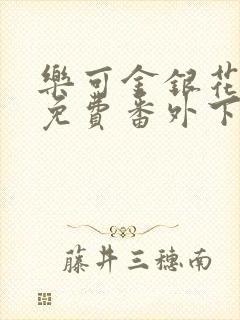 樂可金銀花
免費番外下
藤井三穗南